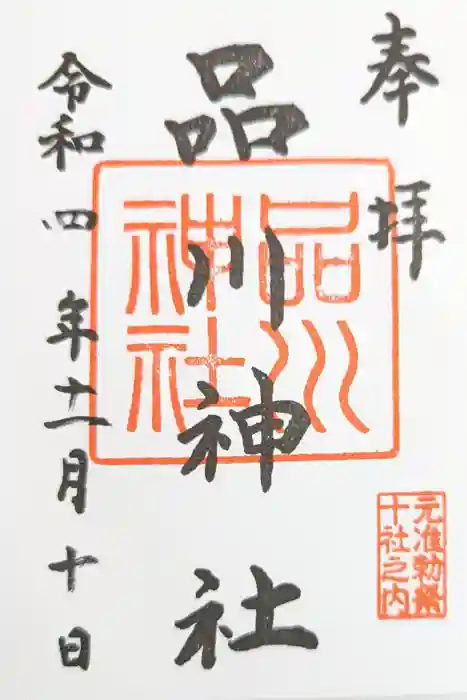 奉拝
品川神社
品川神社
元准勅祭
十社之内
令和四年十一月十日